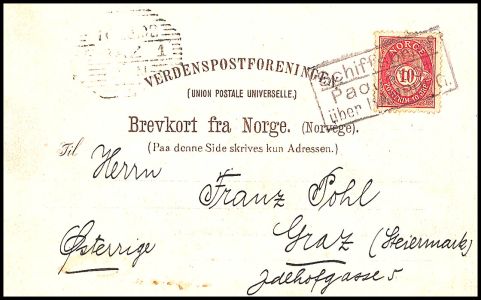 NORGE
10
VERDENSPOSTFORENINGEN
(UNION POSTALE UNIVERSELLE.)
über
Brevkort fra Norge. (Norvège).
(Paa denne Side skrives kun Adressen.)
Til
Herrn
Franz Pohl
Graz (Steiermark)
Østerrige